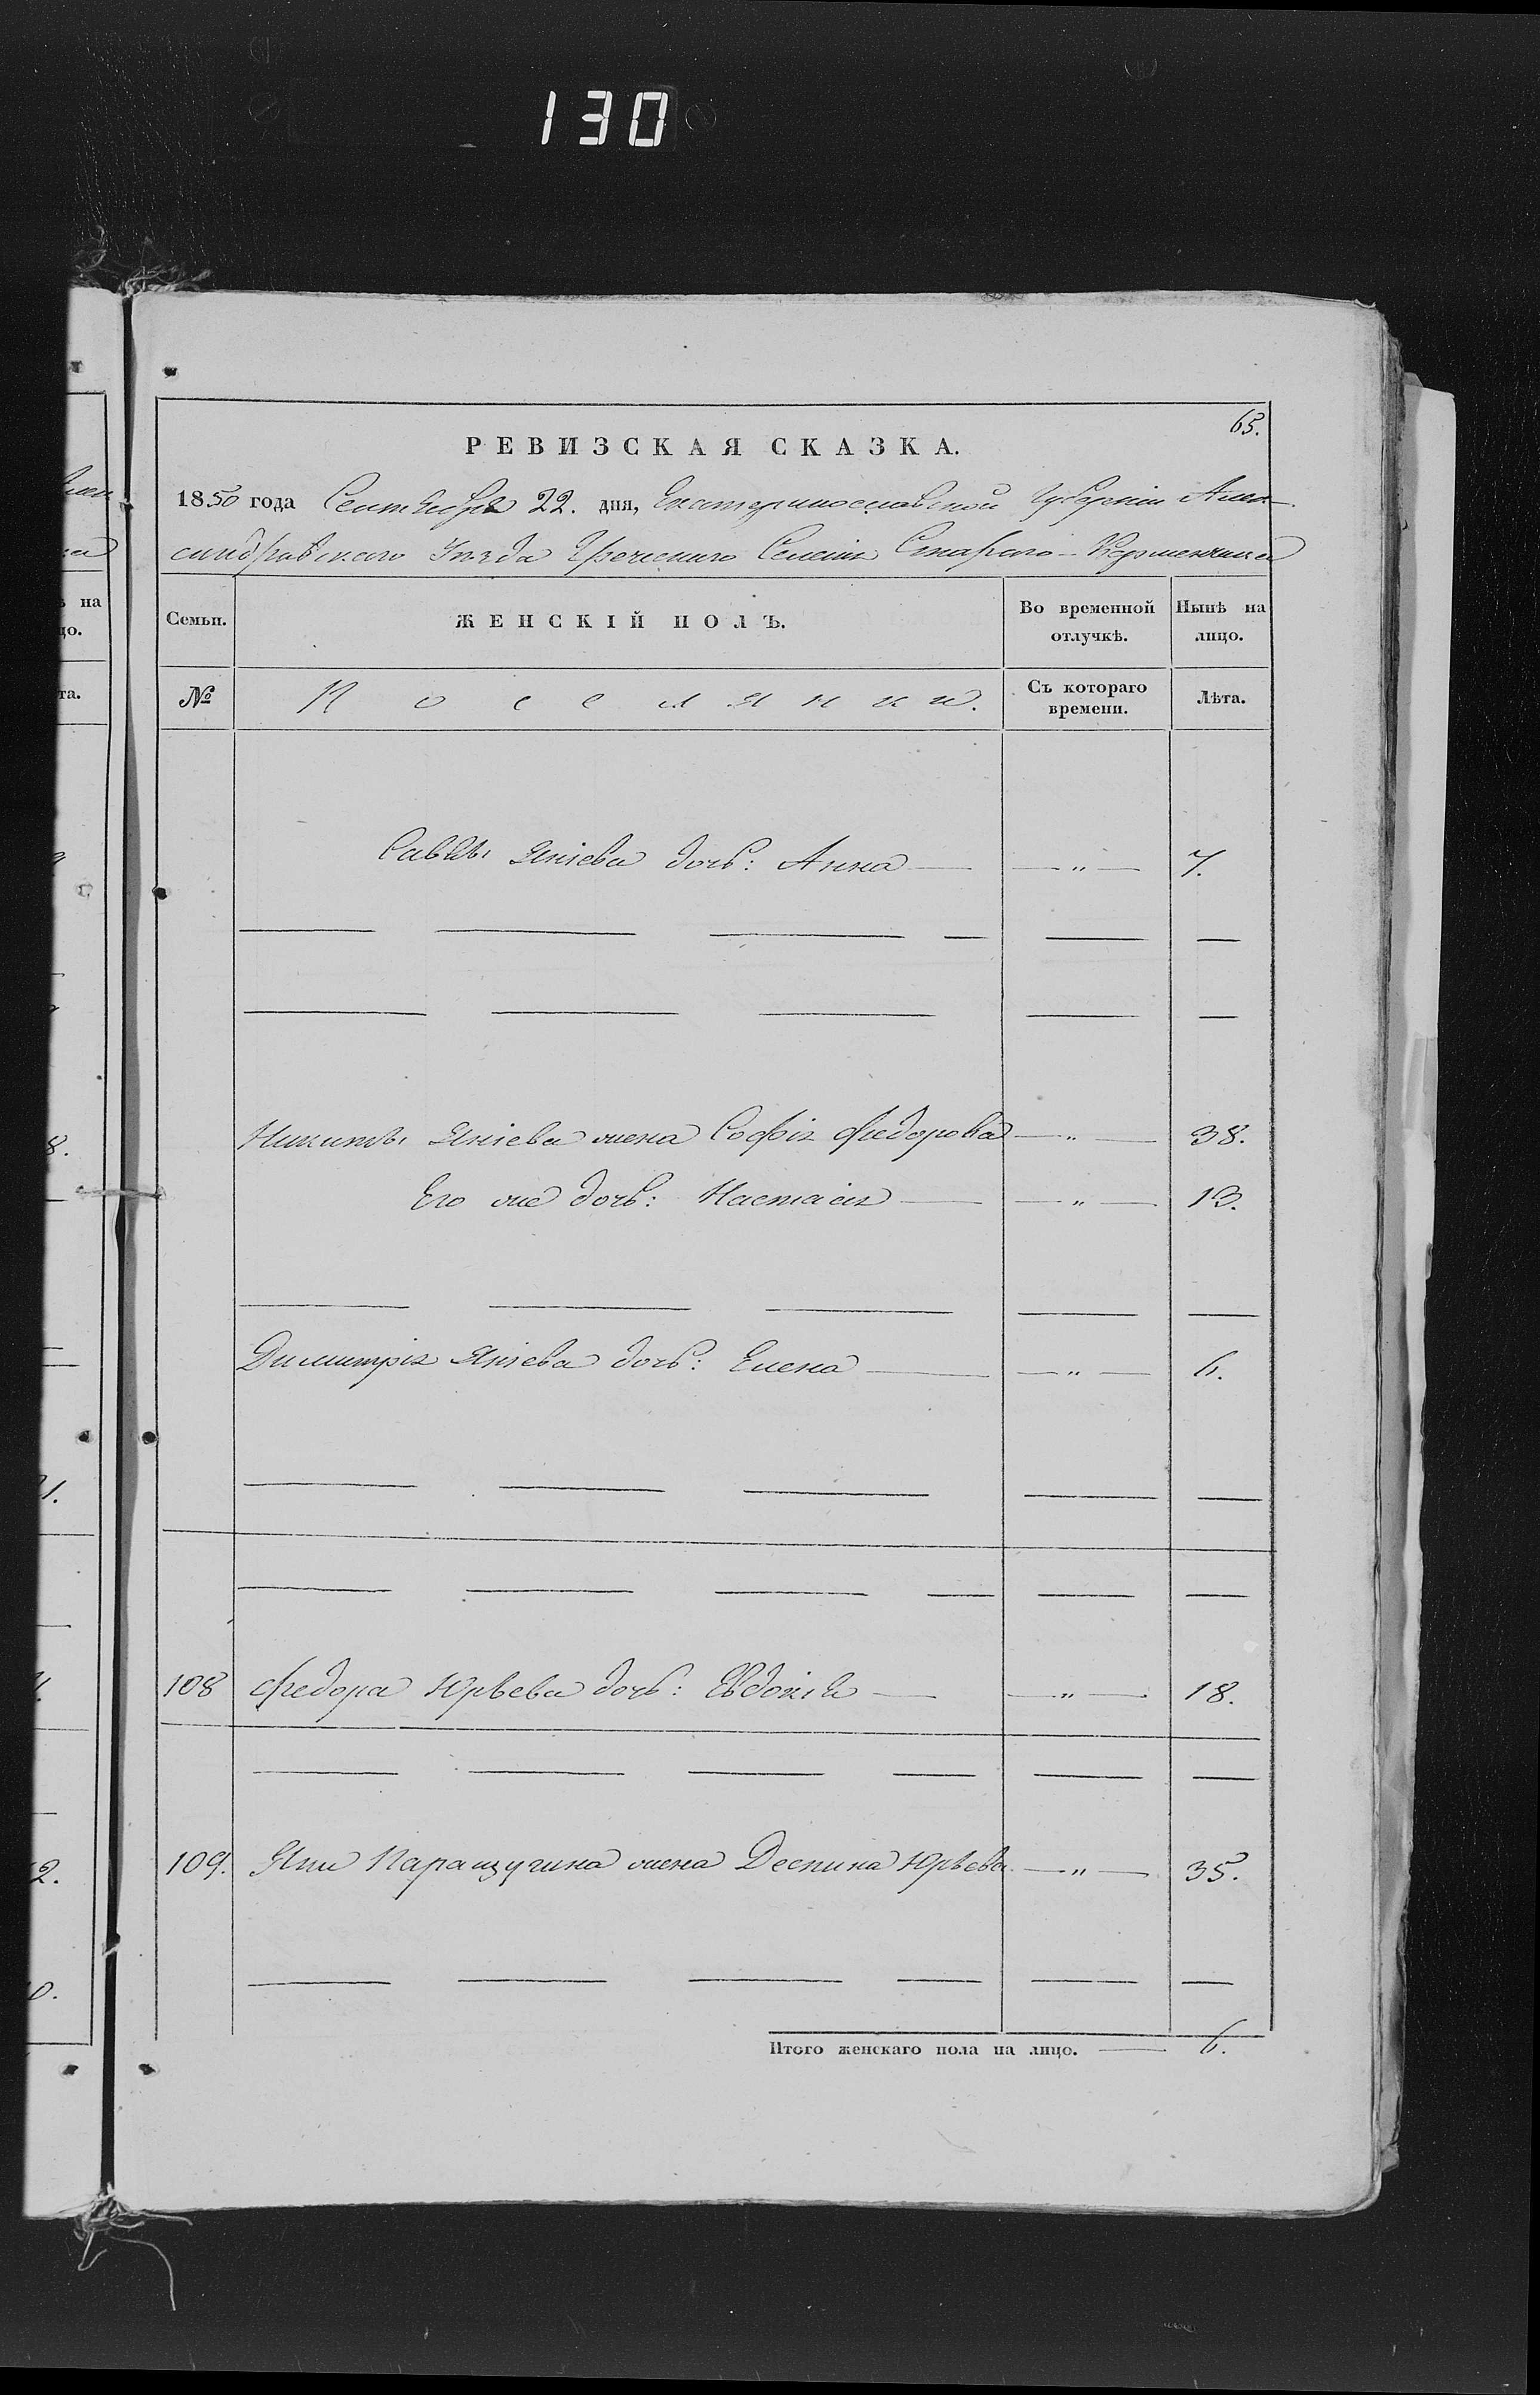 130
65.
РЕВИЗСКАЯ СКАЗКА.
1850 года Сентября 22. дня, Екатеринославской Губерніи Алек-
сандровскаго Уѣзда Греческаго Селенія Стараго-Керменчика
Семьи. ЖЕНСКІЙ ПОЛЪ. Во временной отлучкѣ. Нынѣ на лицо.
№ Поселянки. Съ котораго времени. Лѣта.
Саввы Яніева дочь: Анна — — „ — 7.
Никиты Яніева жена Софія Федорова — „ — 38.
Его же дочь: Настасія — — „ — 13.
Димитрія Яніева дочь: Елена — — „ — 6.
108 Федора Юрьева дочь: Евдокія — — „ — 18.
109. Яни Паращугина жена Деспина Юрьева — „ — 35.
Итого женскаго пола на лицо. — 6.
на
цо.
та.
8.
2.
0.